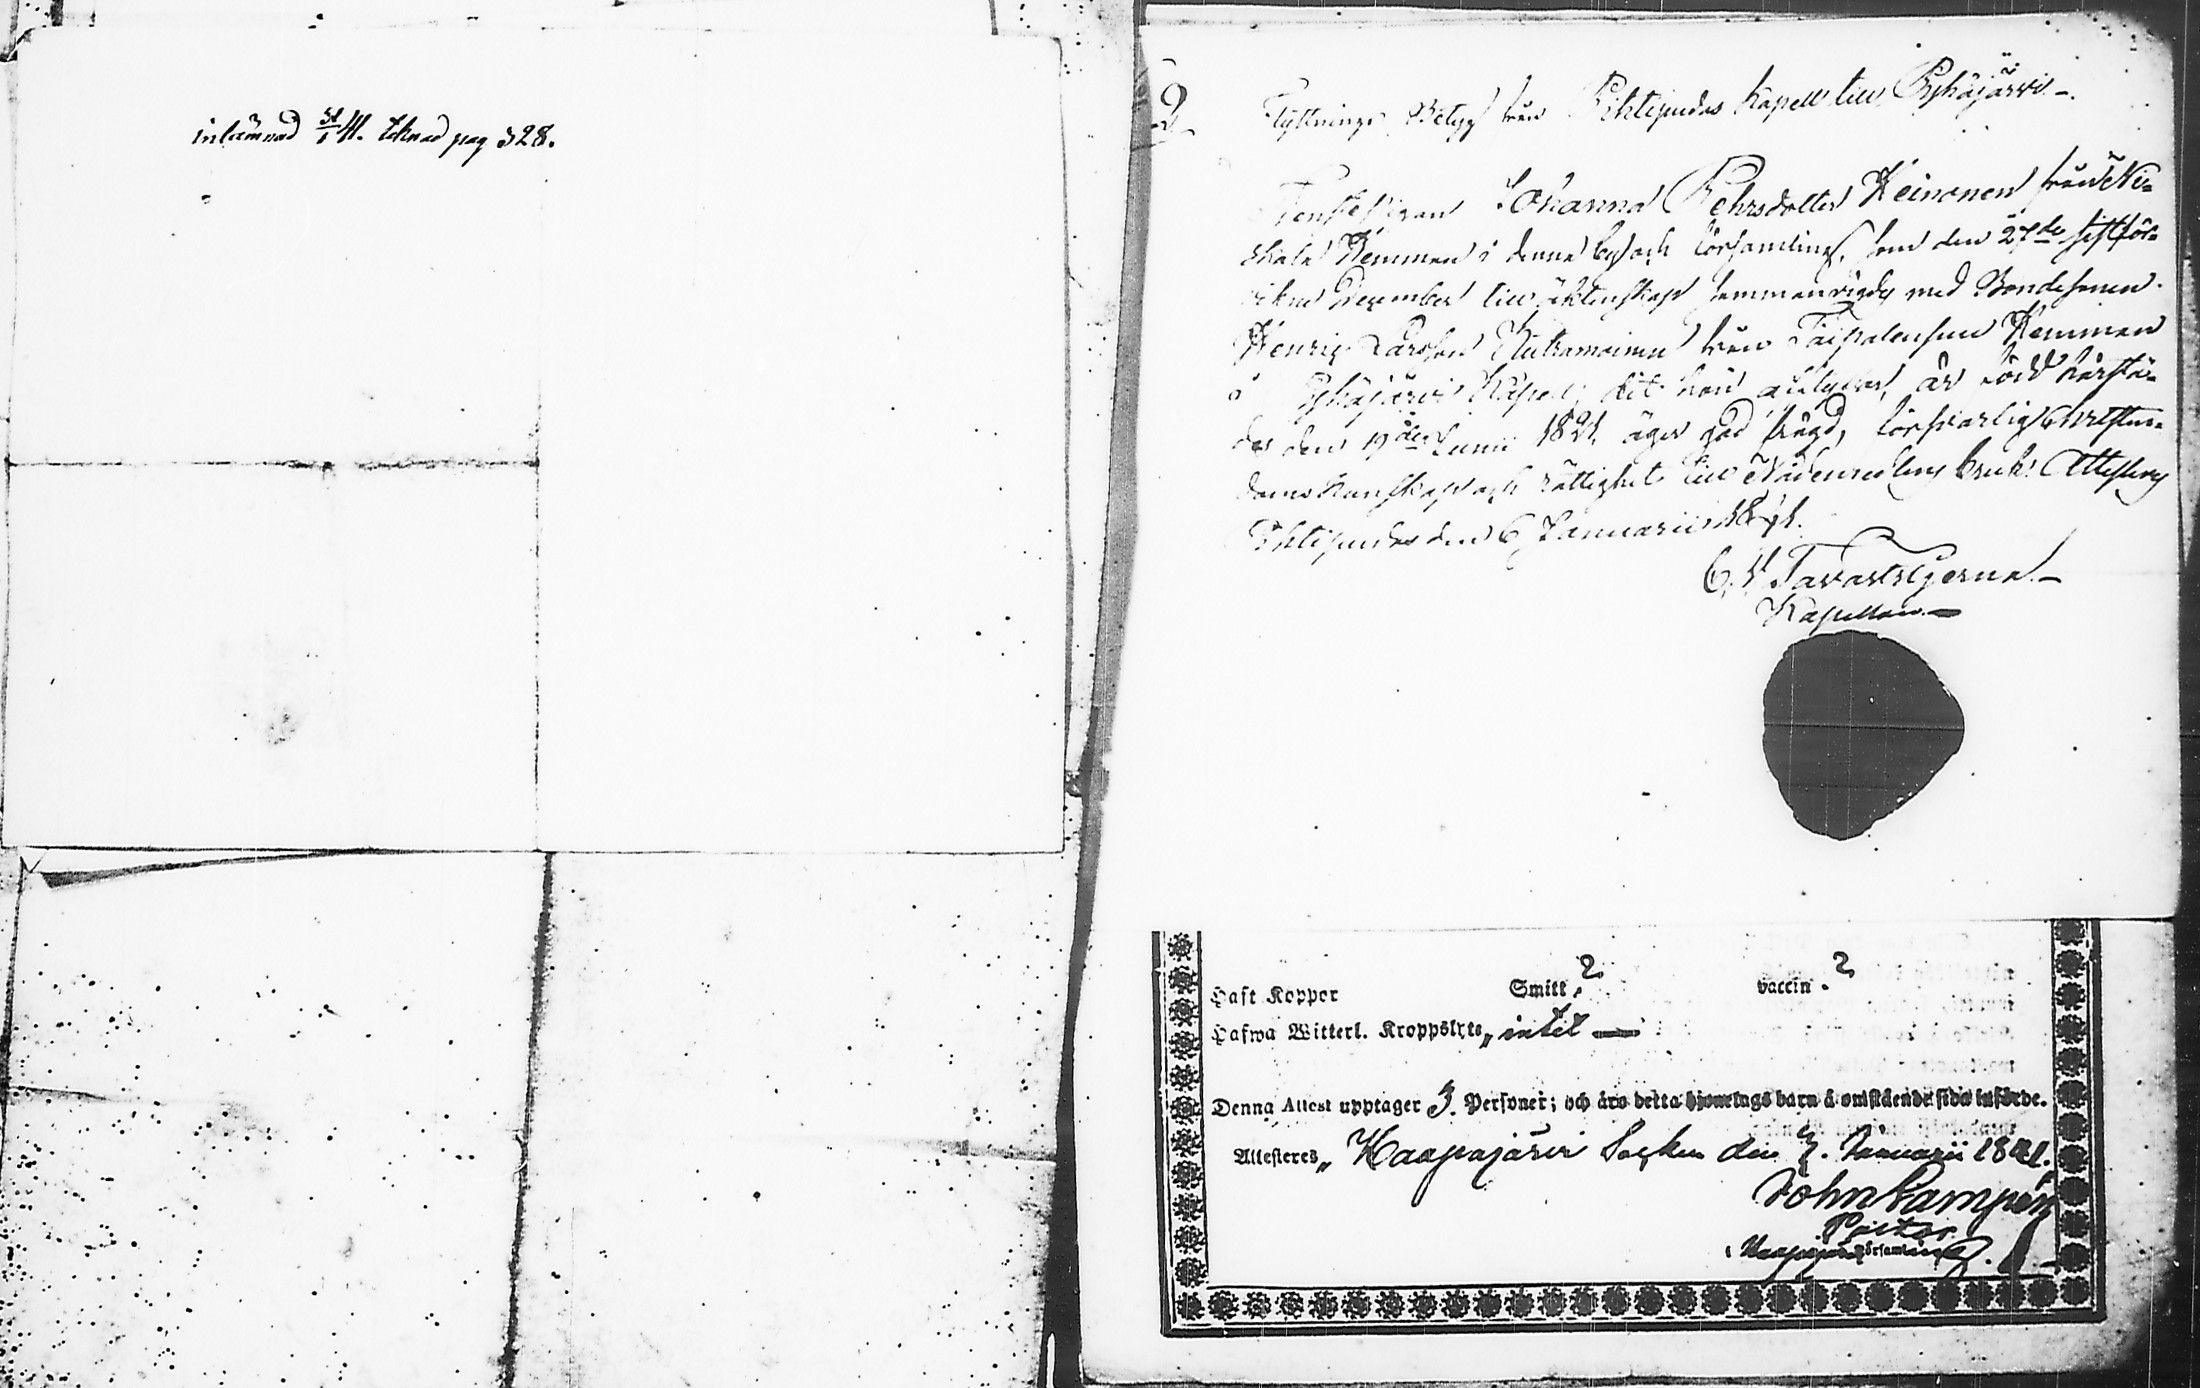 inlämnad 31/1 41. teknad pag 328.
2
Flyttnings Betyg från Pihtipudas Kapell till Pyhäjärvi.
Tensteflickan Johanna Pehrsdotter Heinonen från Ni-
skala Hemman i denna by och församling, som den 27de sistför-
vikne December till äktenskap sammanvigdes med Bondesonen
Henric Larsson Kutramoinen från Taipalensuu Hemman
i Pyhäjärvi Kapell, dit hon aflyttar, är född härstä-
des den 19de Junii 1821, äger god frägd, försvarlig Christen-
doms kunskap och rättighet till Nådemedlens bruk. Attesteras
Pihtipudas den 6 Januarii 1841.
C. A. Tavaststjerna.
Kapellan.
Haft Koppor Smitt. 2 vaccin. 2
Hafwa Witterl. Kroppslyte, intet
Denna Attest upptager 3. Personer; och äro detta hjonelags barn å omstående sida införde.
Attesteres, Haapajärvi Socken den 7. Januarii 1841.
John Lampén
Pastor
i Haapajärvi Församling.